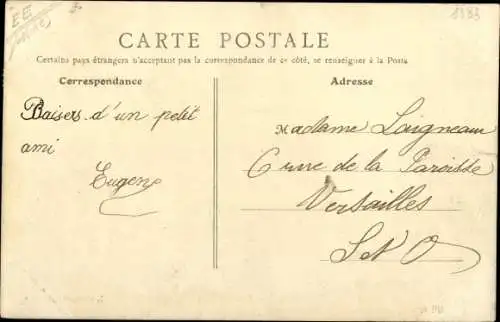 EE
1893
CARTE POSTALE
Certains pays étrangers n'acceptant pas la correspondance de ce côté, se renseigner à la Poste
Correspondance
Adresse
Baisers d'un petit
ami
Eugene
Madame Laigneau
6 rue de la Paroisse
Versailles
S. & O.